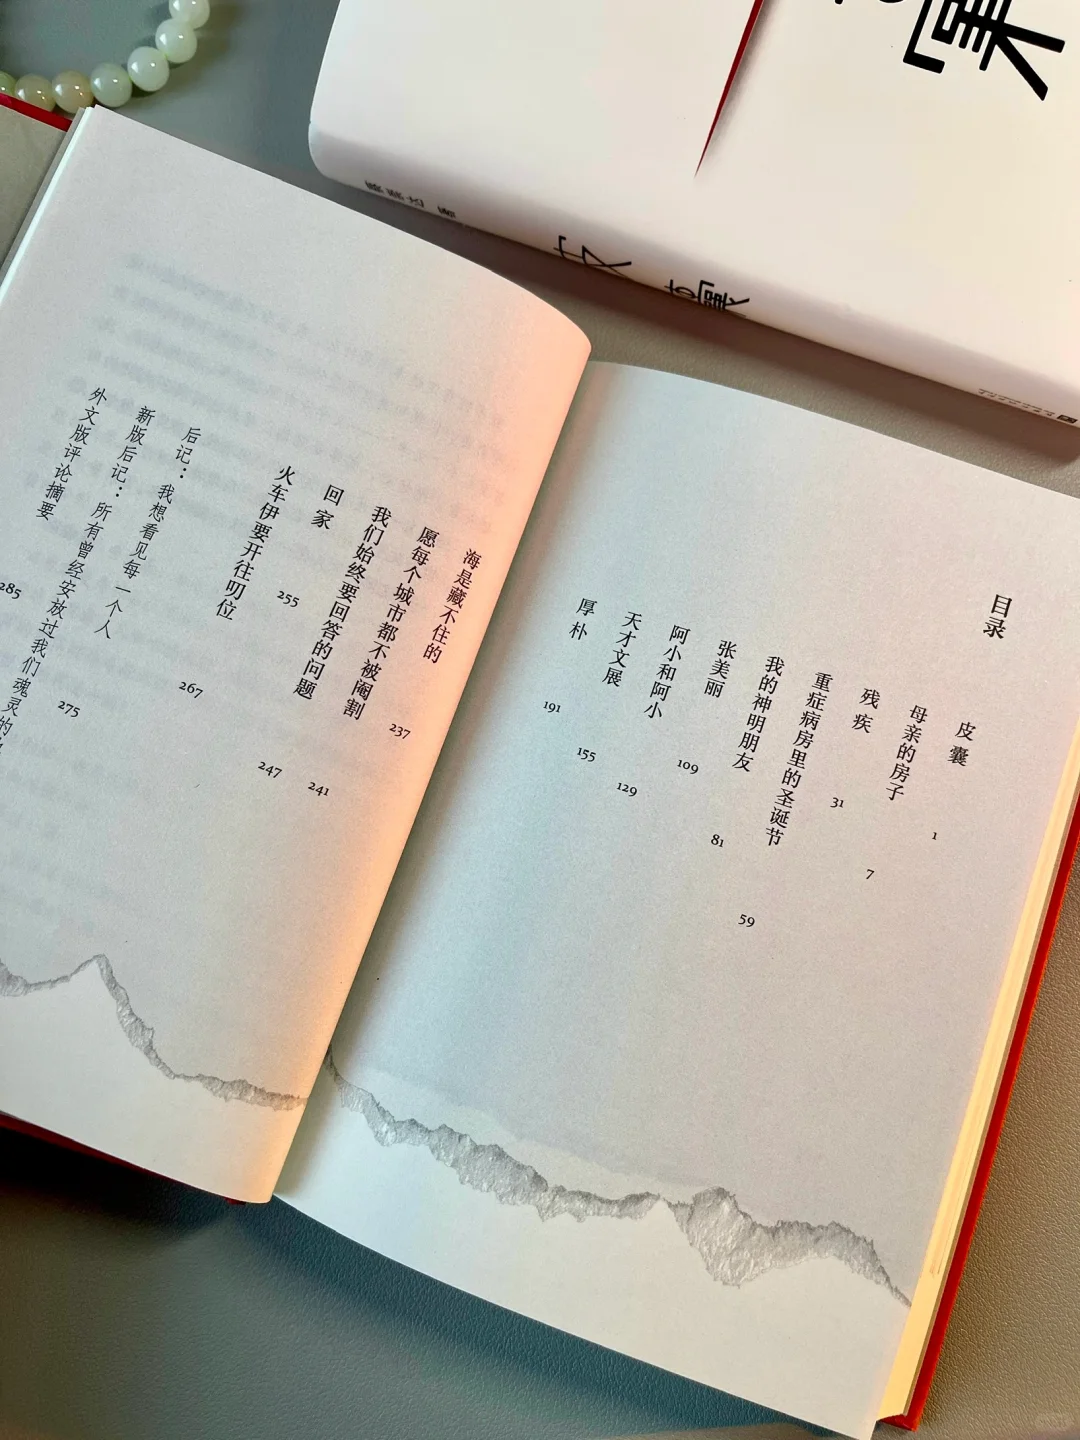 目录
皮囊 1
母亲的房子 7
残疾 31
重症病房里的圣诞节 59
我的神明朋友 81
张美丽 109
阿小和阿小 129
天才文展 155
厚朴 191
海是藏不住的 237
愿每个城市都不被阉割 241
我们始终要回答的问题 247
回家 255
火车伊要开往叨位 267
后记：我想看见每一个人 275
新版后记：所有曾经安放过我们魂灵的
外文版评论摘要 285
蔡崇达 著
皮囊
囊